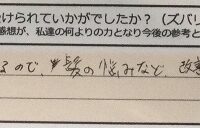 けられていかがでしたか？（ズバリ
感想が、私達の何よりの力となり今後の参考と
るので、髪の悩みなど 改善